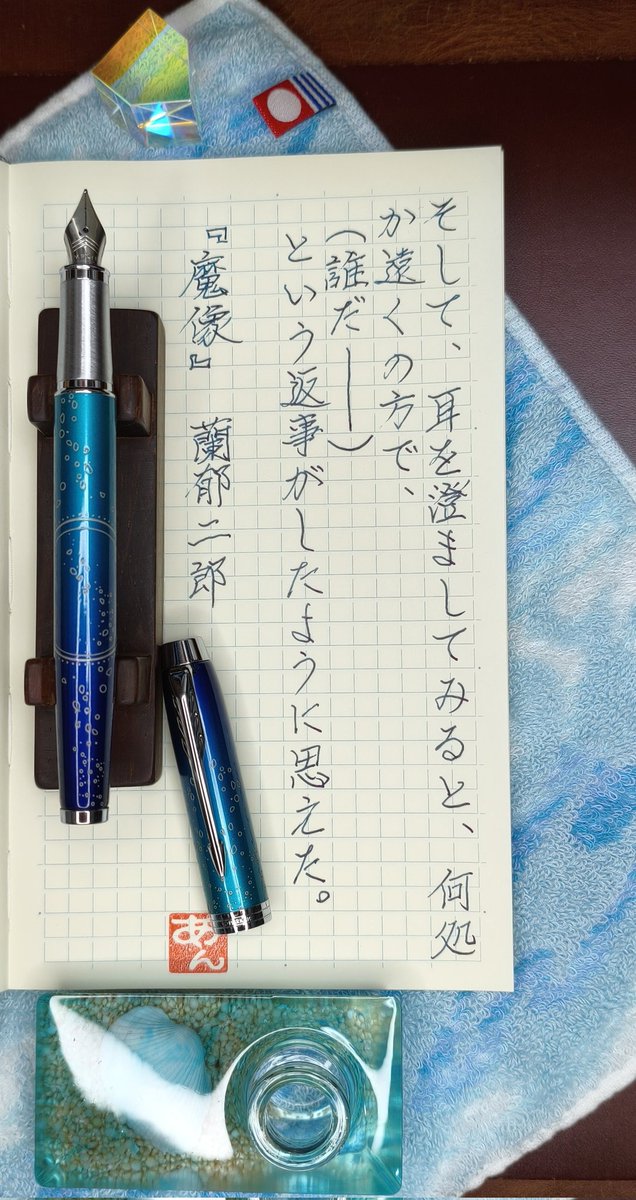 そして、耳を澄ましてみると、何処
か遠くの方で、
（誰だ――）
という返事がしたように思えた。
『魔像』　蘭郁二郎
あん